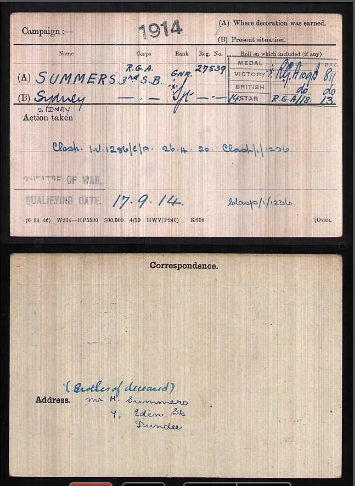 (A) Where decoration was earned.
Campaign:— 1914
(B) Present situation.
Name Corps Rank Reg. No. Roll on which included (if any)
MEDAL
(A) SUMMERS R.G.A. GNR. 27539 VICTORY
3rd S.B. BRITISH do do
(B) Sydney — " — Sjt — " — 14 STAR R.G.A/1B. 13
SIDNEY
Action taken
Clasp. 26.4.20. Clasp/1/1236.
THEATRE OF WAR.
QUALIFYING DATE. 17.9.14. Clasp/1/1236
(6 34 46) W234—HP5590 500,000 4/19 HWV(P240) K608 [OVER.
Correspondence.
(Brother of deceased)
Address. Mr H. Summers
9, Eden St
Dundee